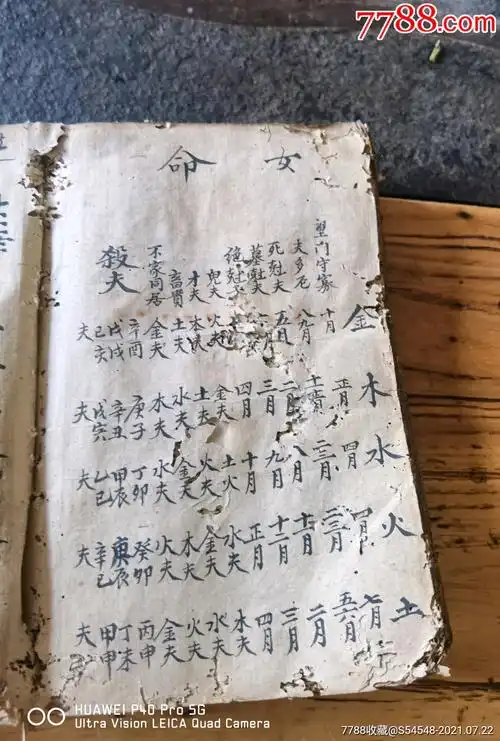 7788.com
女命
望门守寡 死尅夫 墓尅夫 鬼夫 才夫 不家同居 殺夫
金 十月 八九月 五月 火夫 土夫 金夫 辛酉 戊戌 己亥 夫
木 正月 二月 三月 四月 金夫 土夫 水夫 木夫 庚子 辛丑 戊寅 夫
水 四月 二三月 八月 九月 十月 土火 火夫 金夫 水夫 丁卯 甲辰 乙巳 夫
火 四月 二三月 十月 十二月 正月 水夫 金夫 木夫 火夫 癸卯 庚辰 辛巳 夫
土 七月 五六月 二月 三月 四月 木夫 水夫 火夫 金夫 丙申 丁未 甲申 夫
HUAWEI P40 Pro 5G
Ultra Vision LEICA Quad Camera
7788收藏@S54548-2021.07.22